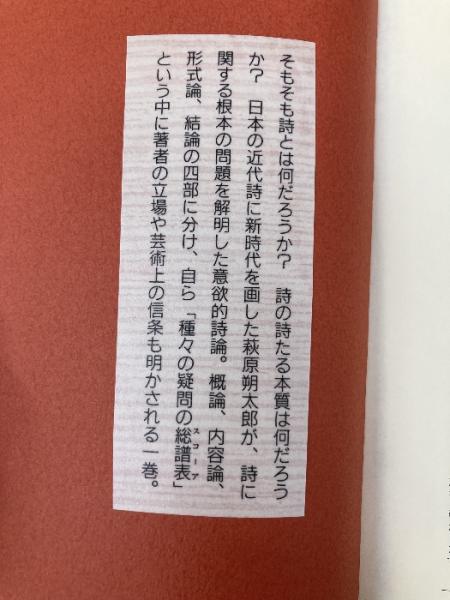 そもそも詩とは何だろうか？　詩の詩たる本質は何だろう
か？　日本の近代詩に新時代を画した萩原朔太郎が、詩に
関する根本の問題を解明した意欲的詩論。概論、内容論、
形式論、結論の四部に分け、自ら「種々の疑問の総譜表」
スコーア
という中に著者の立場や芸術上の信条も明かされる一巻。